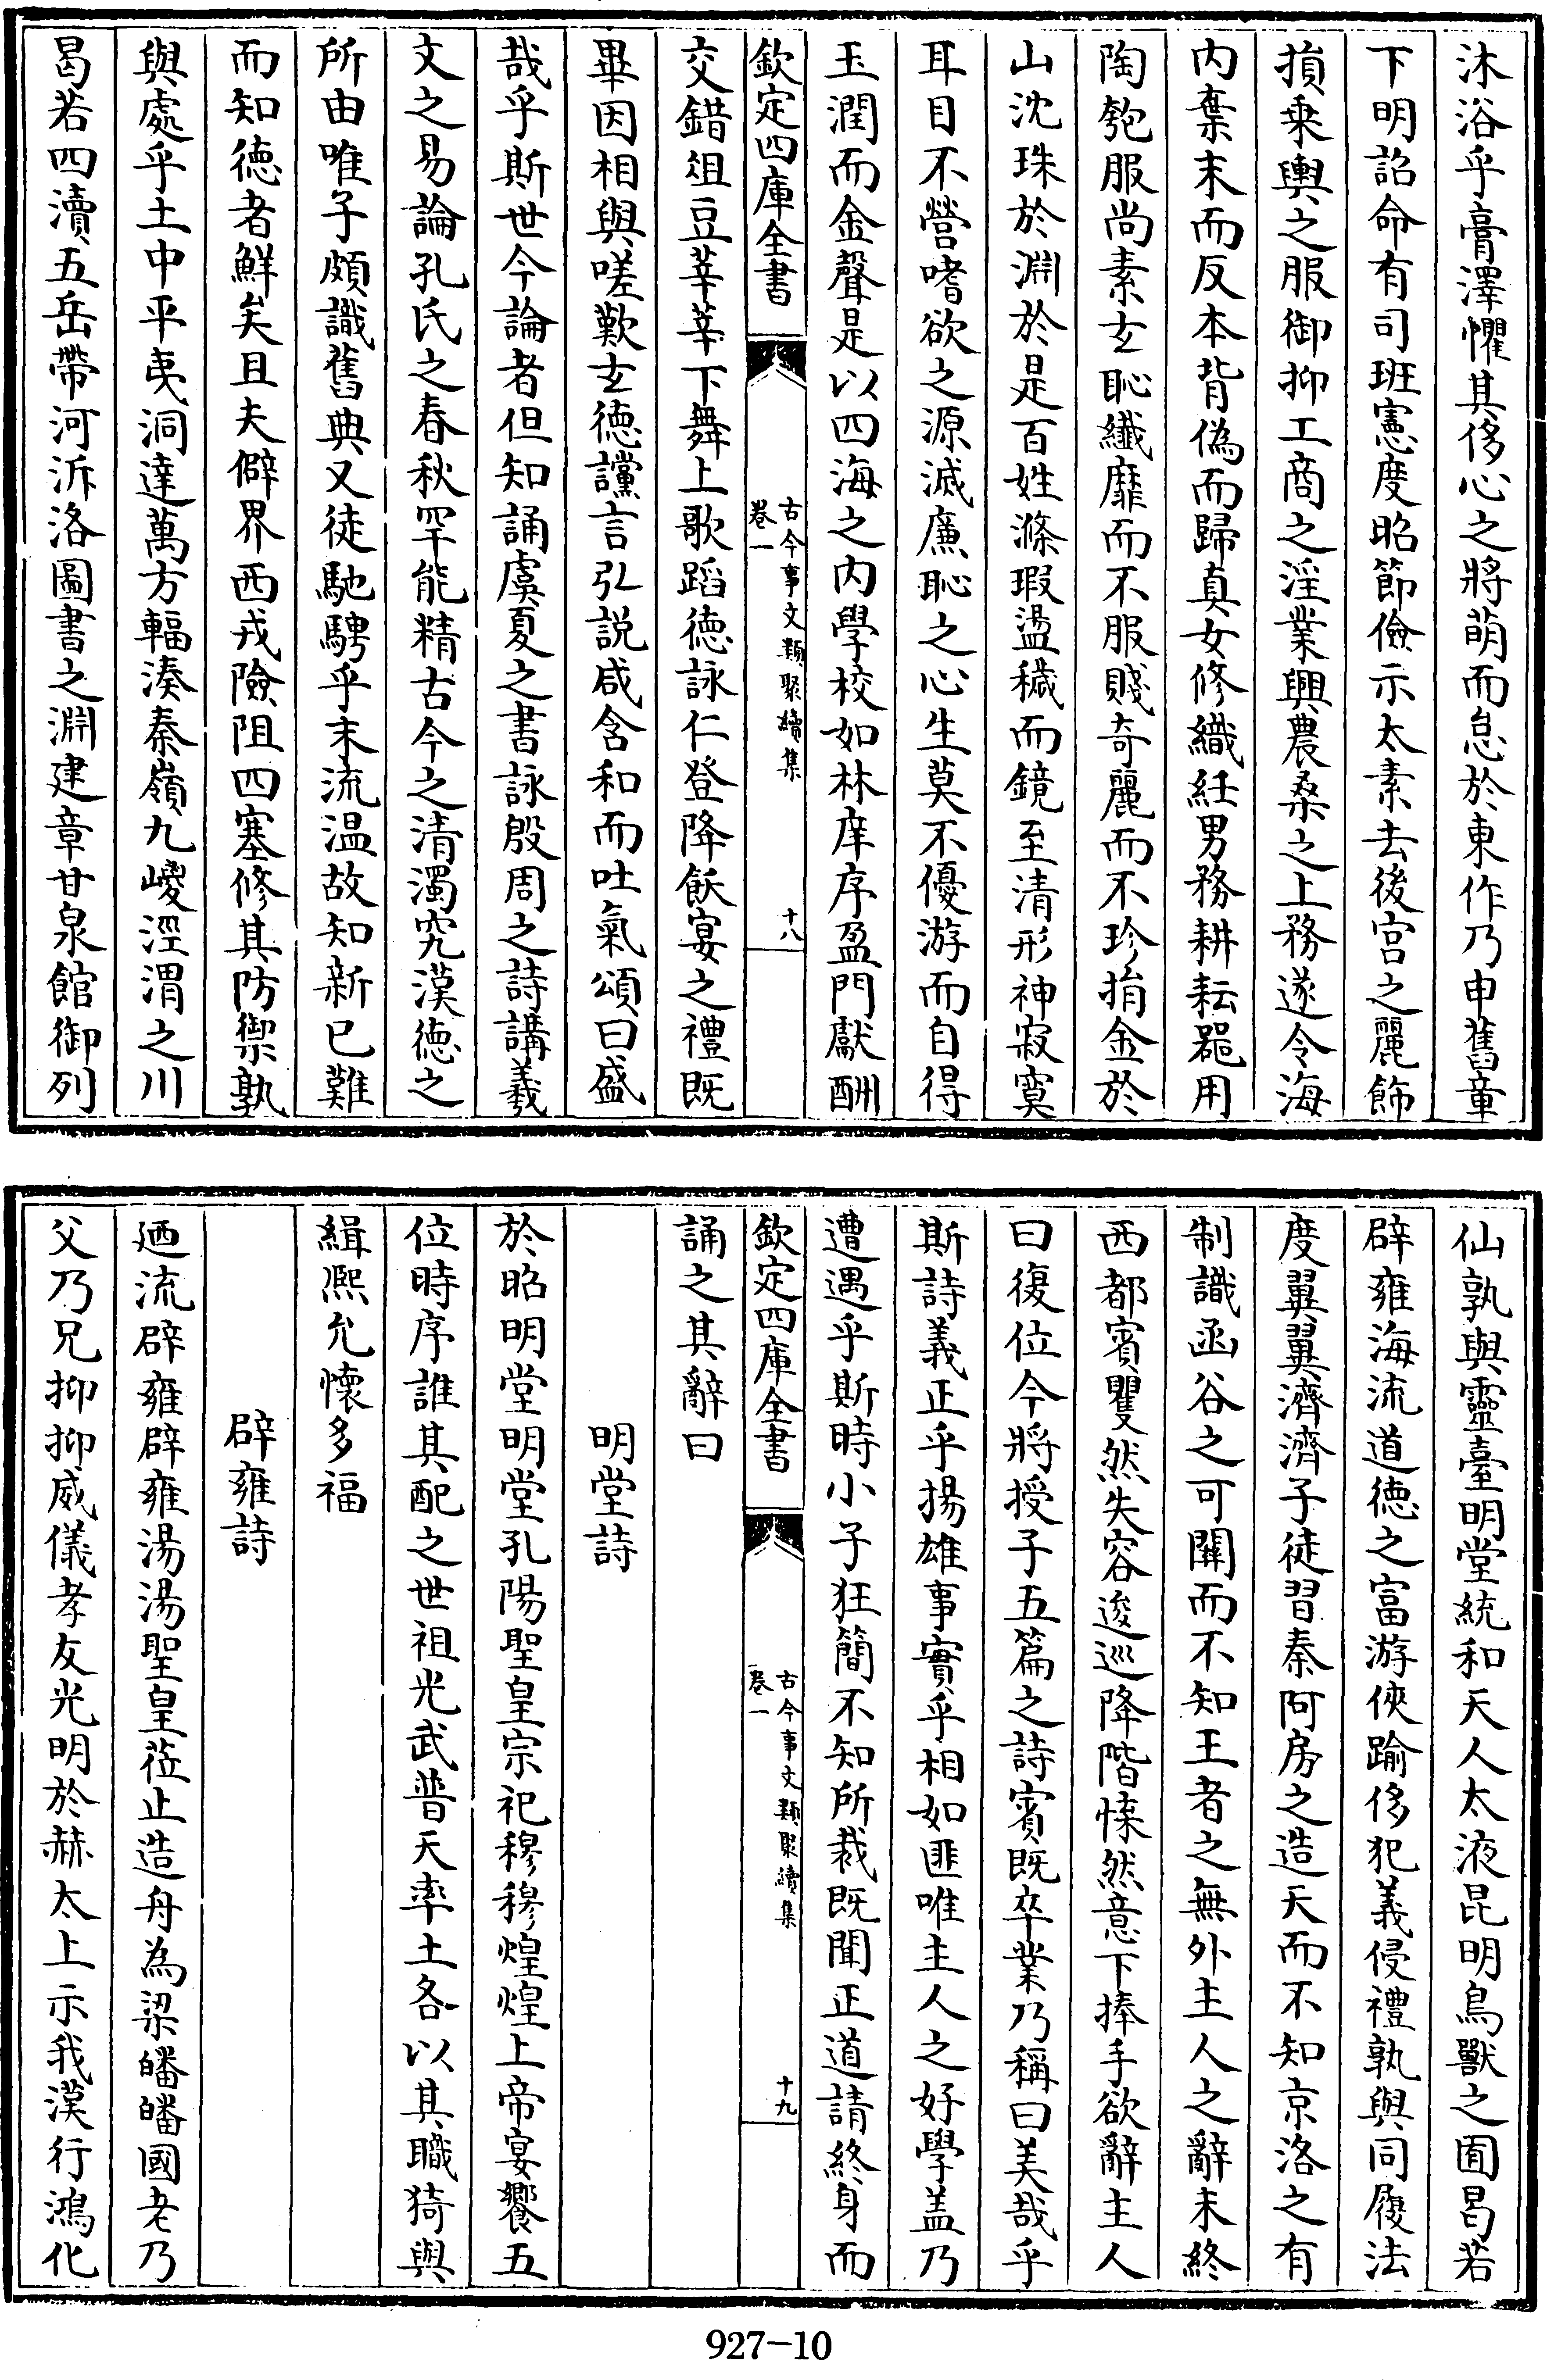 沐浴乎膏澤懼其侈心之將萌而怠於東作乃申舊章
下明詔命有司班憲度昭節儉示太素去後宫之麗飾
損乗輿之服御抑工商之淫業興農桑之上務遂令海
内棄末而反本背偽而歸真女修織紝男務耕耘器用
陶匏服尚素玄恥纖靡而不服賤奇麗而不珍捐金於
山沈珠於淵於是百姓滌瑕盪穢而鏡至清形神寂寞
耳目不營嗜欲之源滅亷恥之心生莫不優游而自得
玉潤而金聲是以四海之内學校如林庠序盈門獻酬
欽定四庫全書
古今事文類聚續集
卷一
十八
交錯俎豆莘莘下舞上歌蹈徳詠仁登降飫宴之禮既
畢因相與嗟歎玄徳讜言弘説咸含和而吐氣頌曰盛
哉乎斯世今論者但知誦虞夏之書詠殷周之詩講羲
文之易論孔氏之春秋罕能精古今之清濁究漢徳之
所由唯子頗識舊典又徒馳騁乎末流温故知新已難
而知徳者鮮矣且夫僻界西戎險阻四塞修其防禦孰
與處乎土中平夷洞達萬方輻湊秦嶺九嵕涇渭之川
曷若四瀆五岳帶河泝洛圖書之淵建章甘泉館御列
仙孰與靈臺明堂統和天人太液昆明鳥獸之囿曷若
辟雍海流道徳之富游俠踰侈犯義侵禮孰與同履法
度翼翼濟濟子徒習秦阿房之造天而不知京洛之有
制識函谷之可闗而不知王者之無外主人之辭未終
西都賓矍然失容逡巡降階愫然意下捧手欲辭主人
曰復位今將授子五篇之詩賓既卒業乃稱曰美哉乎
斯詩義正乎揚雄事實乎相如匪唯主人之好學盖乃
遭遇乎斯時小子狂簡不知所裁既聞正道請終身而
欽定四庫全書
古今事文類聚續集
卷一
十九
誦之其辭曰
明堂詩
於昭明堂明堂孔陽聖皇宗祀穆穆煌煌上帝宴饗五
位時序誰其配之世祖光武普天率土各以其職猗與
緝熙允懷多福
辟雍詩
廼流辟雍辟雍湯湯聖皇蒞止造舟為梁皤皤國老乃
父乃兄抑抑威儀孝友光明於赫太上示我漢行鴻化
927-10